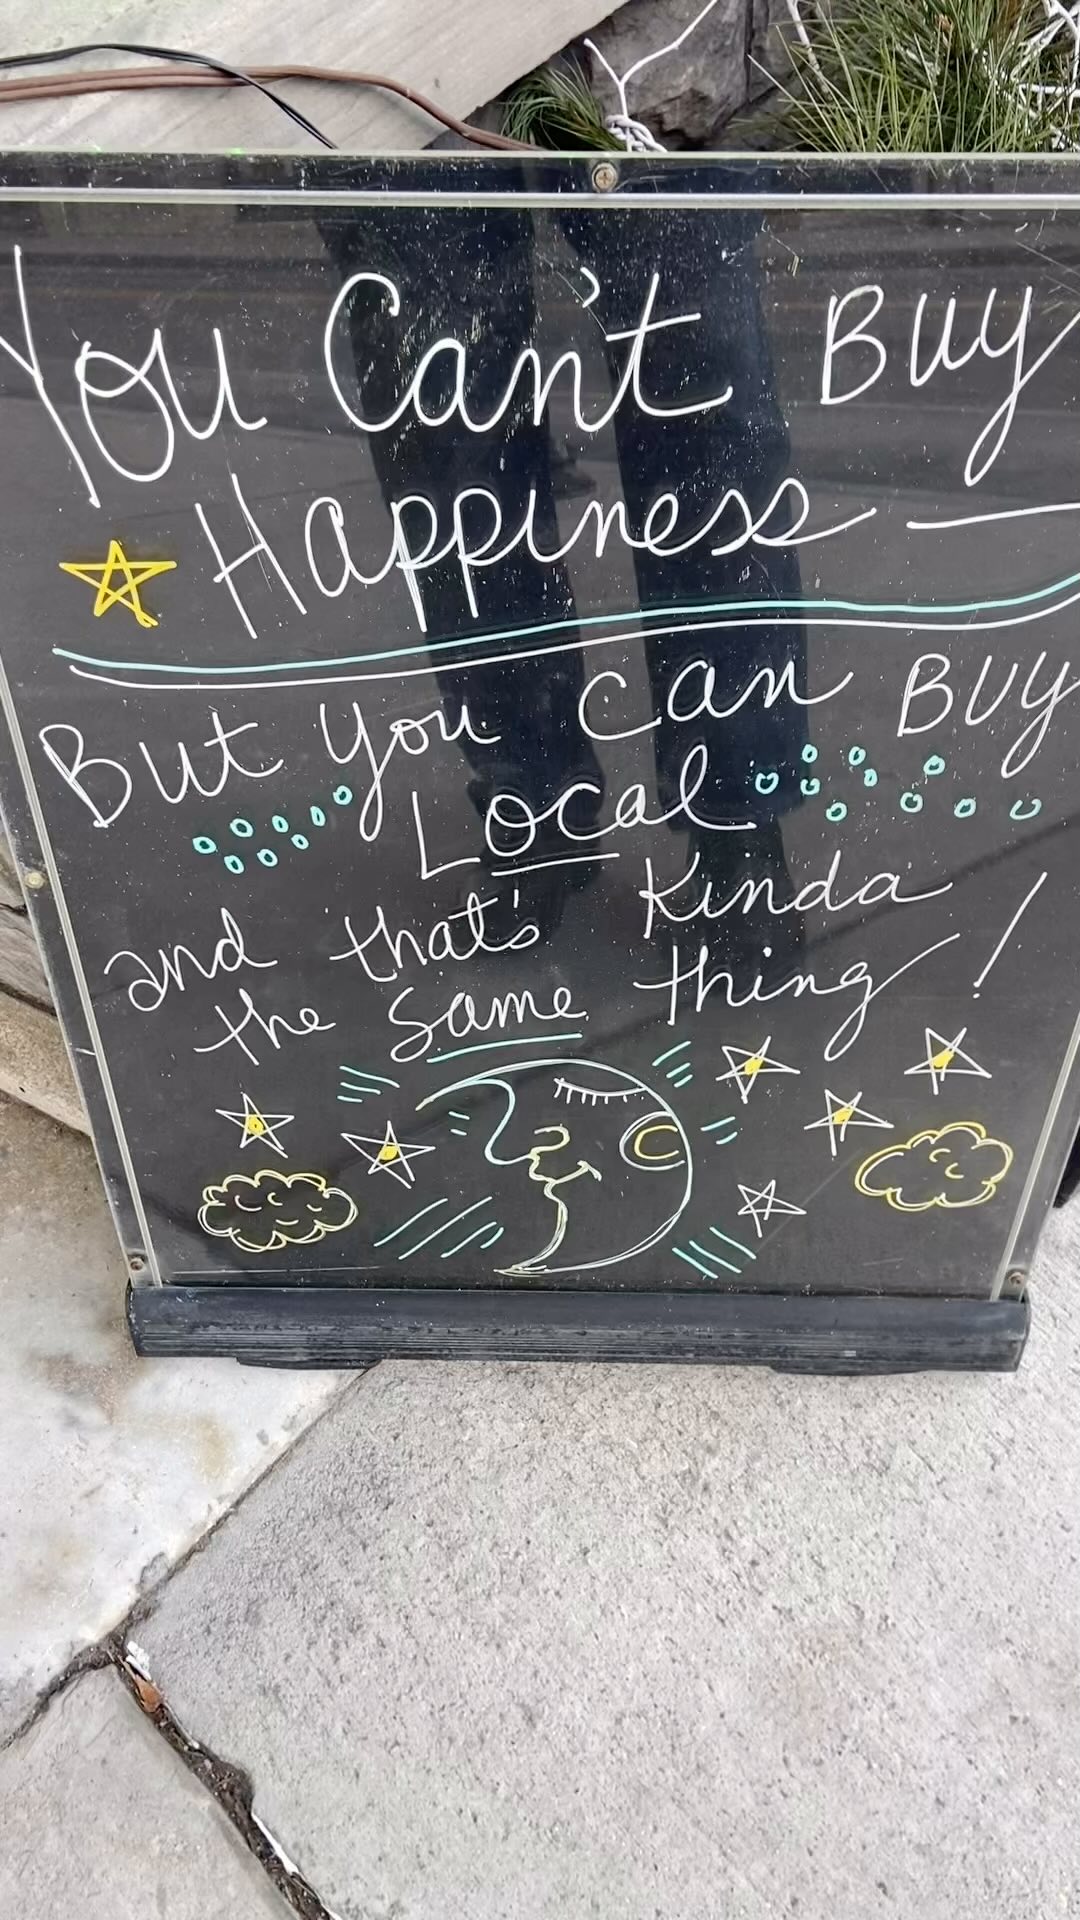 You Can't Buy
Happiness —
But you can Buy
Local
and that's Kinda
the same thing!